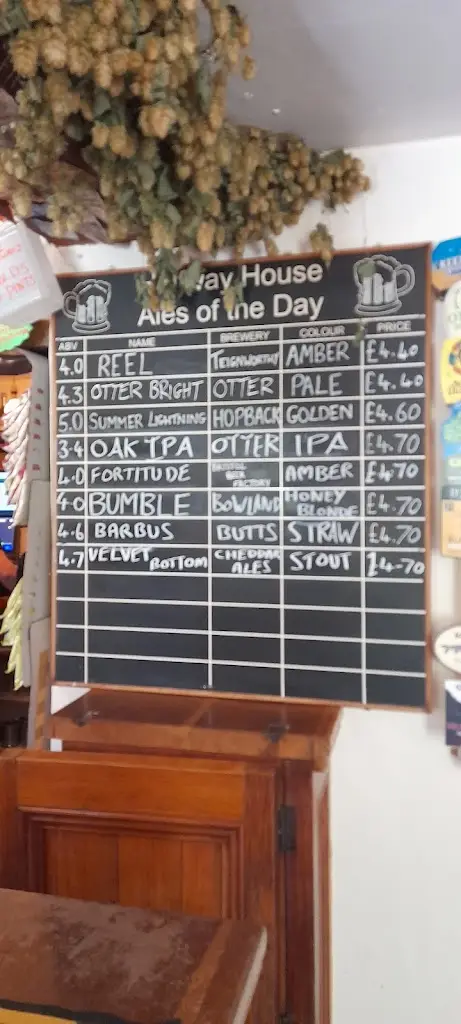 way House
Ales of the Day
ABV NAME BREWERY COLOUR PRICE
4.0 REEL TEIGNWORTHY AMBER £4.40
4.3 OTTER BRIGHT OTTER PALE £4.40
5.0 SUMMER LIGHTNING HOPBACK GOLDEN £4.60
3.4 OAK IPA OTTER IPA £4.70
4.0 FORTITUDE BRISTOL BEER FACTORY AMBER £4.70
4.0 BUMBLE BOWLAND HONEY BLONDE £4.70
4.6 BARBUS BUTTS STRAW £4.70
4.7 VELVET BOTTOM CHEDDAR ALES STOUT £4.70